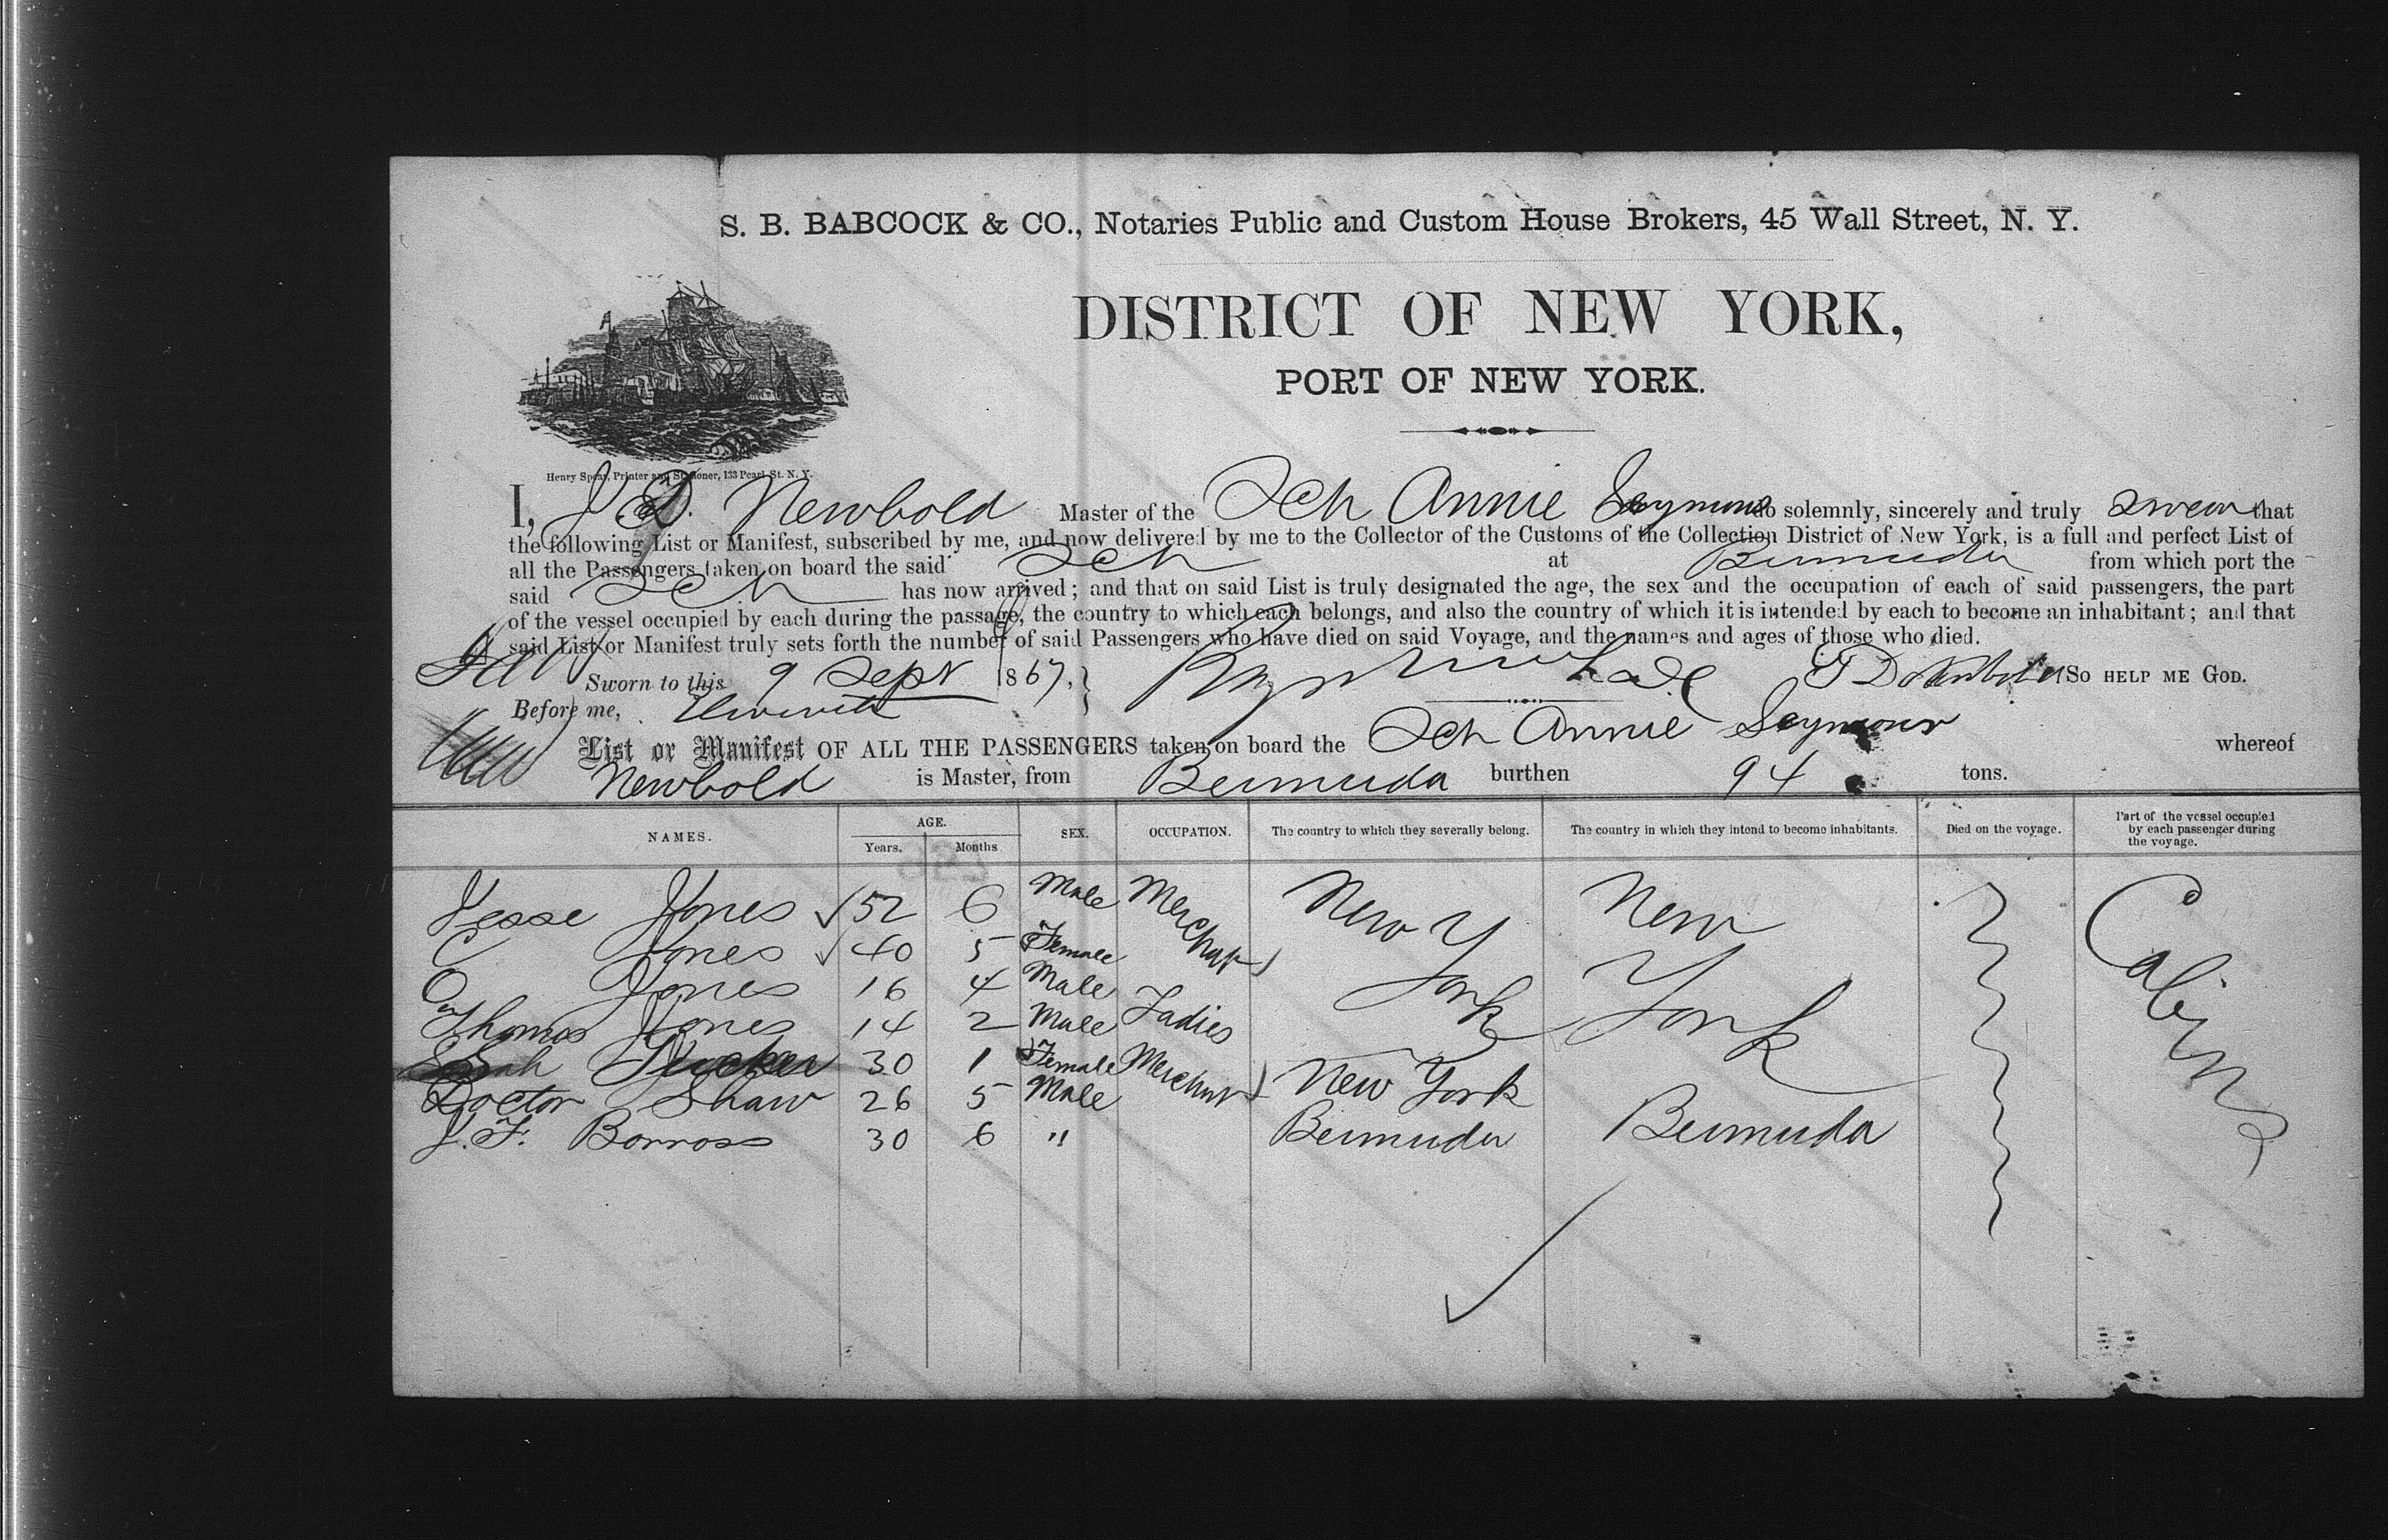 S. B. BABCOCK & CO., Notaries Public and Custom House Brokers, 45 Wall Street, N. Y.
DISTRICT OF NEW YORK,
PORT OF NEW YORK.
Henry Spear, Printer and Stationer, 133 Pearl St. N. Y.
I, J. D. Newbold Master of the Sch Annie Seymour do solemnly, sincerely and truly swear that
the following List or Manifest, subscribed by me, and now delivered by me to the Collector of the Customs of the Collection District of New York, is a full and perfect List of
all the Passengers taken on board the said Sch at Bermuda from which port the
said Sch has now arrived; and that on said List is truly designated the age, the sex and the occupation of each of said passengers, the part
of the vessel occupied by each during the passage, the country to which each belongs, and also the country of which it is intended by each to become an inhabitant; and that
said List or Manifest truly sets forth the number of said Passengers who have died on said Voyage, and the names and ages of those who died.
Sworn to this 9 Sept 1867, So HELP ME GOD.
Before me,
List or Manifest OF ALL THE PASSENGERS taken on board the Sch Annie Seymour whereof
Newbold is Master, from Bermuda burthen 94 tons.
NAMES. AGE. Years. Months SEX. OCCUPATION. The country to which they severally belong. The country in which they intend to become inhabitants. Died on the voyage. Part of the vessel occupied by each passenger during the voyage.
Jesse Jones 52 6 Male Merchant New York New York Cabin
C Jones 40 5 Female
O Jones 16 4 Male
Thomas Jones 14 2 Male Ladies
Sarah Tucker 30 1 Female Merchant New York
Doctor Shaw 26 5 Male
J. F. Borross 30 6 " Bermuda Bermuda